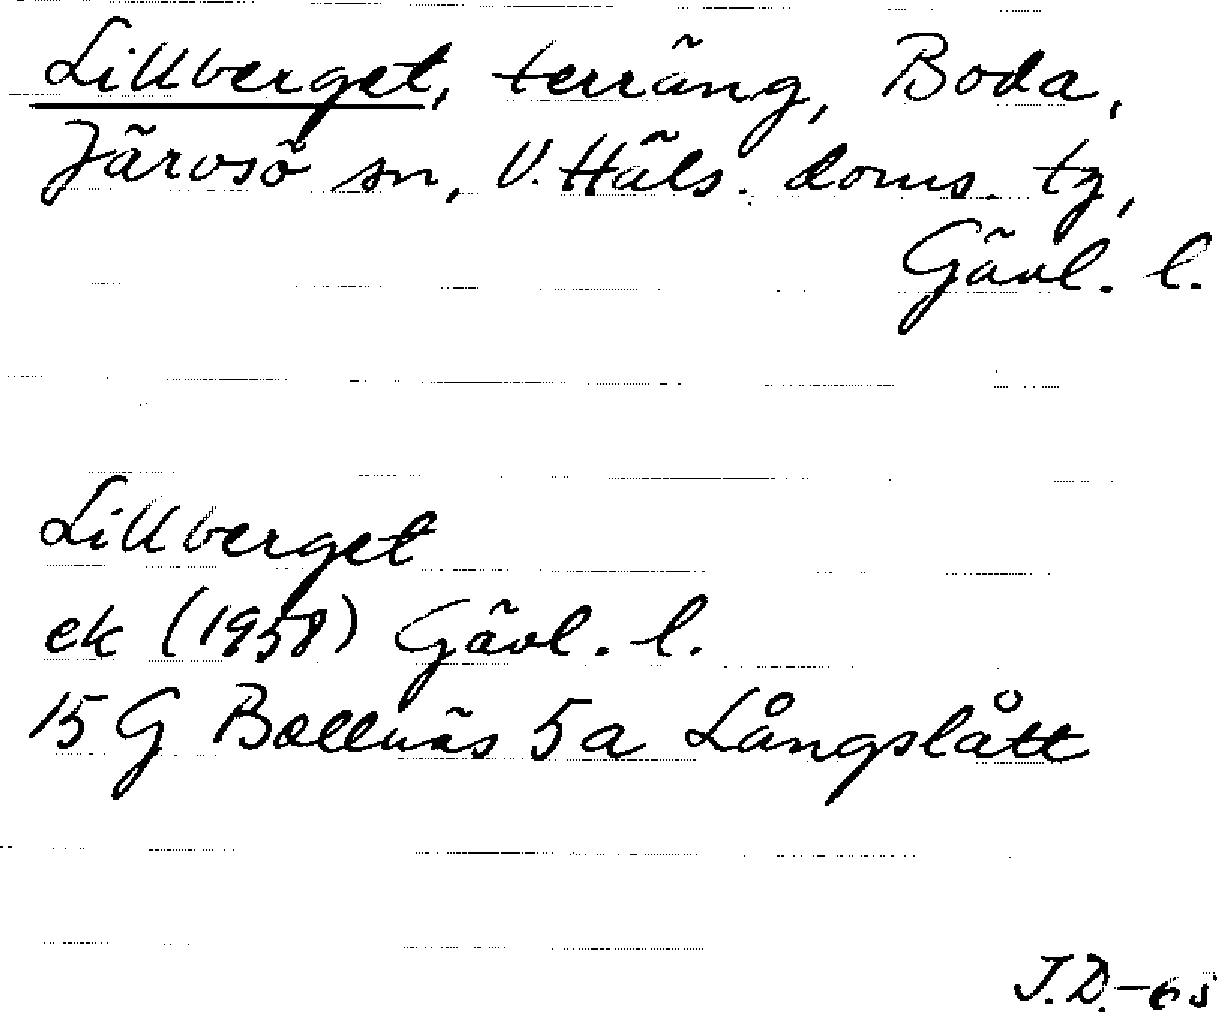 Lillberget, terräng, Boda,
Järvsö sn, V. Häls. doms. tg,
Gävl. l.
Lillberget
ek (1958) Gävl. l.
15 G Bollnäs 5a Långslått
J.D.-65